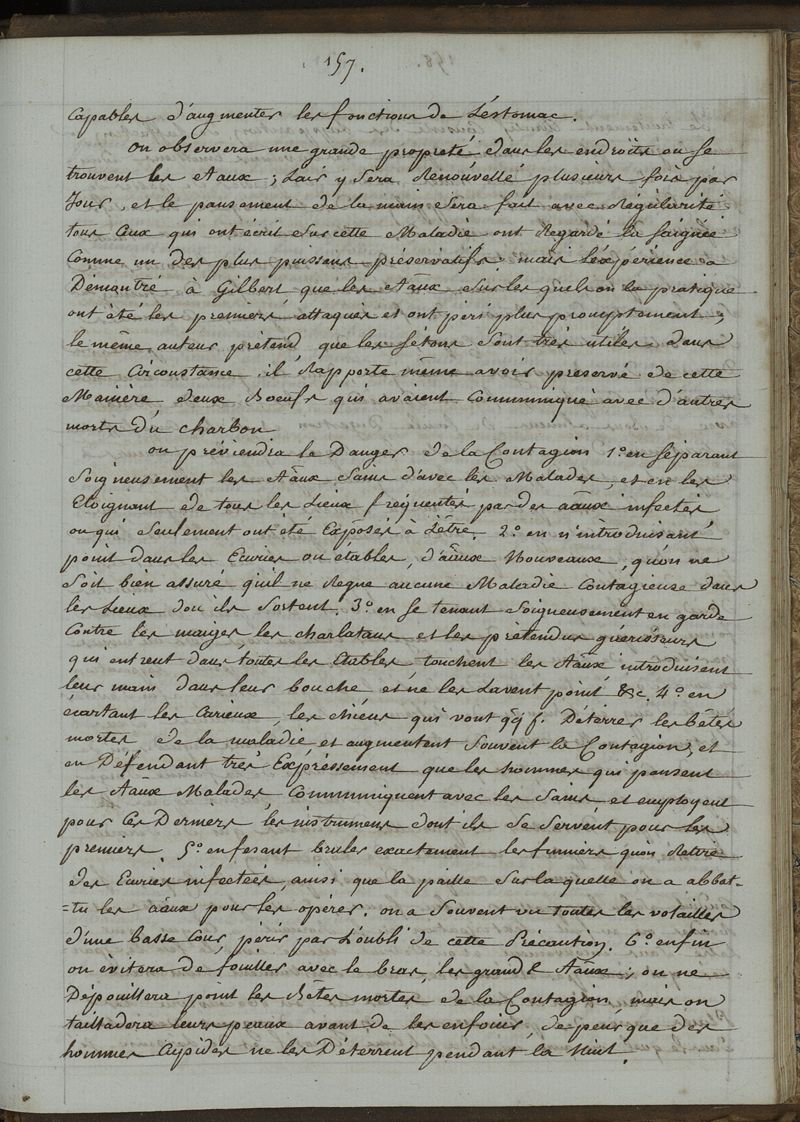 157.
capables d'augmenter les fonctions de Léstomac.
on observera une grande propreté dans les endroits ou se
trouvent les aāux ; Lair y Sera Renouvellé plusieurs fois par
Jour, et le pansement de la main Sera fait avec Régularité
tous ceux qui ont écrit Sur cette Maladie ont Regardé la Saignée
Comme un des plus puissens préservatifs, mais l'éxpérience a
Démontré à Gilbert que les aāux Sur les quels on la pratique
ont été les premiers attaqués et ont péri plus promptement ;
le même auteur prétend que les sétons Sont très utiles dans
cette Circonstance, il Rapporte même avoir preservé de cette
Manière deux Boeufs qui avaient Communiqué avec d'autres
morts du charbon
on préviendra le Danger de la Contagion 1.° en Séparant
Soigneusement les aāux Sains d'avec les Malades, et en les
Eloignant de tous les Lieux fréquentés par des aāux infectés
ou qui Seulement ont été Exposés à L'être. 2.° en n'introduisant
point dans les Ecuries ou étables, d'aāux Nouveaux, qu'on ne
Soit bien assuré quil ne Regne aucune Maladie Contagieuse dans
les Lieux dou ils Sortent. 3.° en Se tenant Soigneusement en garde
Contre les maiges les charlatans et les prétendus guérisseurs
qui entrent dans toutes les Etables touchent les aāux introduisent
leur main dans leur bouche et ne les Lavent point &c. 4.° en
écartant les Curieux, les chiens qui vont qq f. Déterrer les bêtes
mortes de la maladie, et augmentent Souvent la Contagion, et
en Défendant très Expréssement que les hommes qui pansent
les aāux Malades Communiquent avec les Sains, et employent
pour Ces Derniers les instrumens dont ils Se Servent pour les
premiers. 5.° en fesant bruler exactement les fumiers quon Retire
des Ecuries infectées, ainsi que la paille Sur la quelle on a abbat-
=tu les aāux pour les opérer. on a Souvent vu toutes les volailles
d'une basse Cour périr par L'oubli de cette Précaution. 6.° enfin
on èvitera de fouiller avec le bras, les grands aāux ; on ne
Dépouillera point les Bêtes mortes de la Contagion, mais on
tailladera leurs peaux avant de les enfouir, de peur que des
hommes Cupides ne les Déterrent pendant la Nuit.